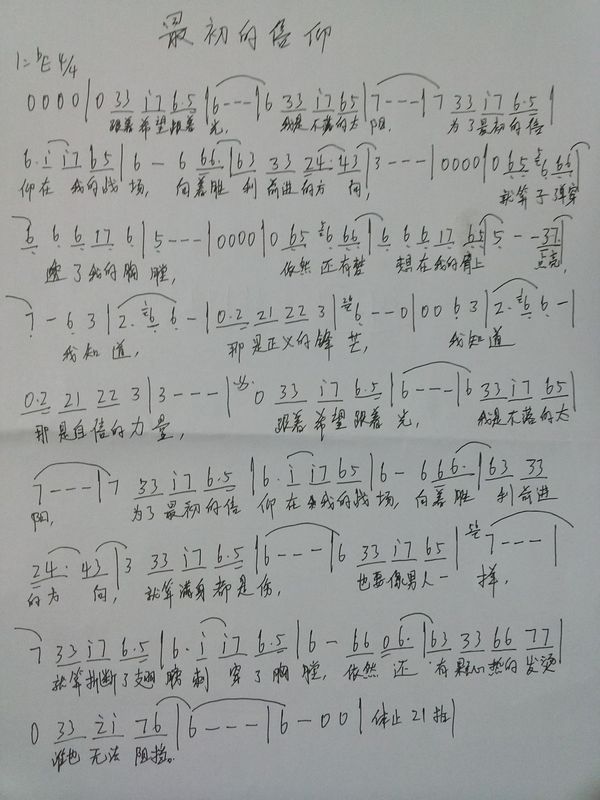 最初的信仰
1=ᵇE 4/4
0 0 0 0 | 0 33 i7 6.5 | 6 - - - | 6 33 i7 65 | 7 - - - | 7 33 i7 6.5 |
跟着希望跟着 光, 我是不落的太 阳, 为了最初的信
6. i i7 65 | 6 - 6 66. | 63 33 24. 43 | 3 - - - | 0 0 0 0 | 0 65 6 66 |
仰在 我的战 场, 向着胜 利 前进的方 向, 就算子弹穿
6 6 6 17 6 | 5 - - - | 0 0 0 0 | 0 65 6 66 | 6 6 6 17 65 | 5 - - 37 |
透了我的胸 膛, 依然 还有梦 想在我的肩上 点亮,
7 - 6 3 | 2. 6 6 - | 0.2 21 22 3 | 6 - - 0 | 0 0 6 3 | 2. 6 6 - |
我知道, 那是正义的锋 芒, 我知道
0.2 21 22 3 | 3 - - - | 0 33 i7 6.5 | 6 - - - | 6 33 i7 65 |
那是自信的力 量, 跟着希望跟着 光, 我是不落的太
7 - - - | 7 33 i7 6.5 | 6. i i7 65 | 6 - 6 66. | 63 33
阳, 为了最初的信 仰在 我的战场, 向着胜 利前进
24. 43 | 3 33 i7 6.5 | 6 - - - | 6 33 i7 65 | 7 - - - |
的方 向, 就算满身都是伤, 也要像男人一 样,
7 33 i7 6.5 | 6. i i7 6.5 | 6 - 66 06. | 63 33 66 77 |
就算折断了翅膀 刺 穿了胸膛, 依然 还 有颗心热的发烫
0 33 2i 76 | 6 - - - | 6 - 0 0 | 休止21拍 |
谁也 无法 阻挡。